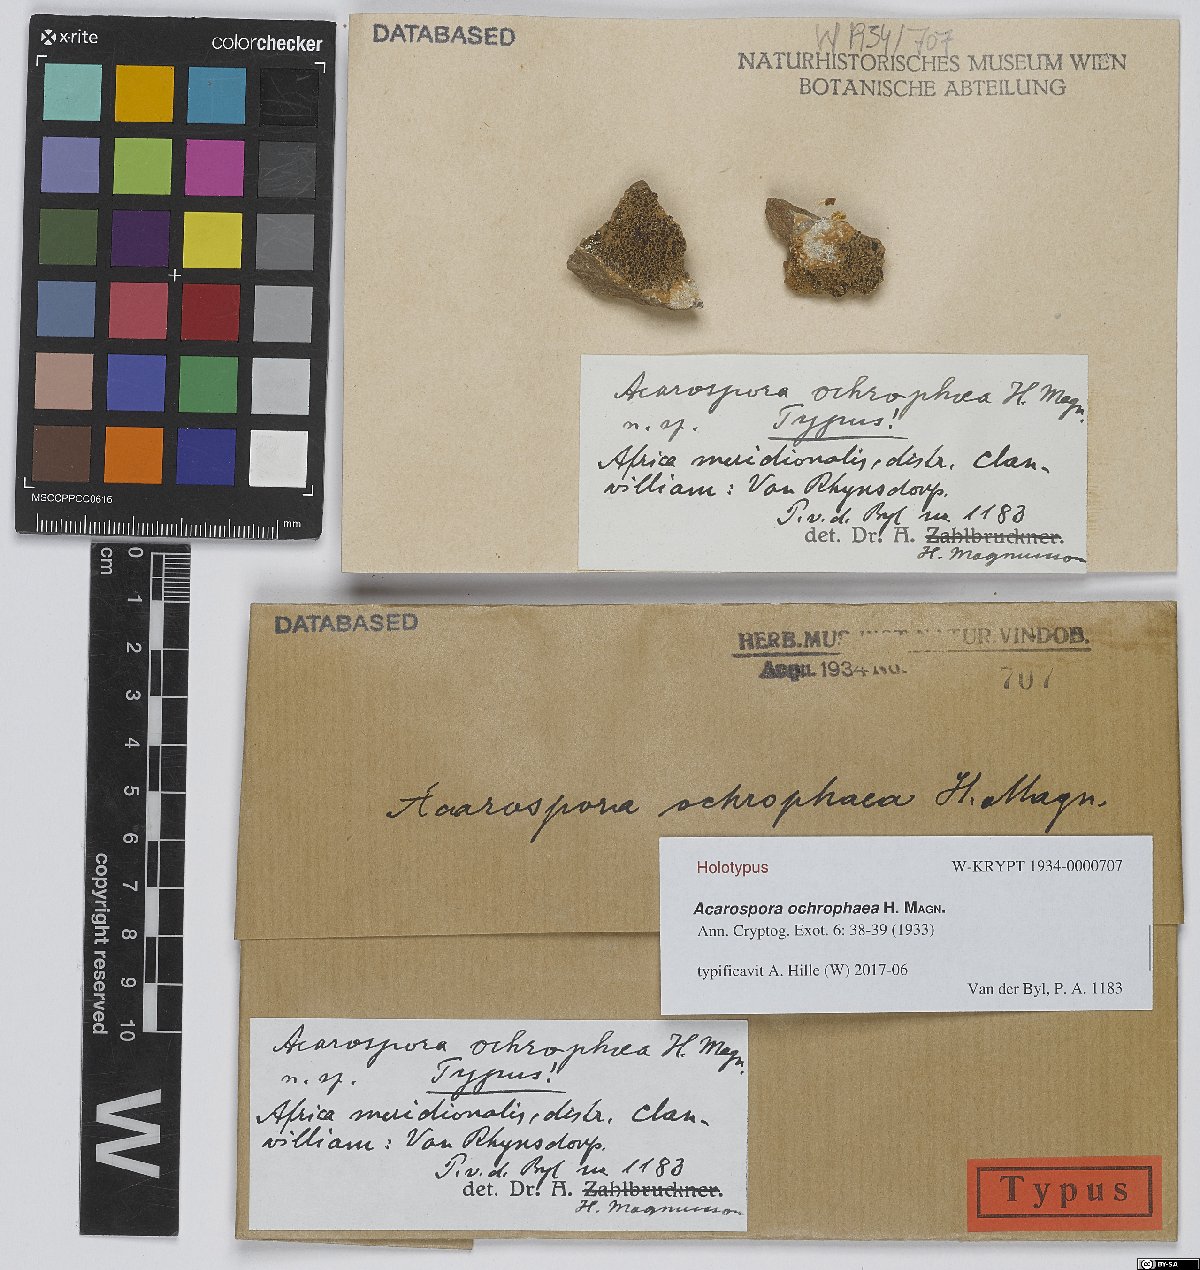 x-rite
colorchecker
MSCCPPCC0616
mm
cm
0
1
2
3
4
5
6
7
8
9
10
copyright reserved
W
DATABASED
W 1934/707
NATURHISTORISCHES MUSEUM WIEN
BOTANISCHE ABTEILUNG
Acarospora ochrophæa H. Magn.
n. sp. Typus!
Africa meridionalis, distr. Clan-
william: Van Rhynsdorp.
P. v. d. Byl no 1183
det. Dr. A. Zahlbruckner.
H. Magnusson
DATABASED
HERB. MUS. HIST. NATUR. VINDOB.
Acqu. 1934 No. 707
Acarospora ochrophaea H. Magn.
Holotypus W-KRYPT 1934-0000707
Acarospora ochrophaea H. MAGN.
Ann. Cryptog. Exot. 6: 38-39 (1933)
typificavit A. Hille (W) 2017-06
Van der Byl, P. A. 1183
Acarospora ochrophæa H. Magn.
n. sp. Typus!
Africa meridionalis, distr. Clan-
william: Van Rhynsdorp.
P. v. d. Byl no 1183
det. Dr. A. Zahlbruckner.
H. Magnusson
Typus
CC BY-SA